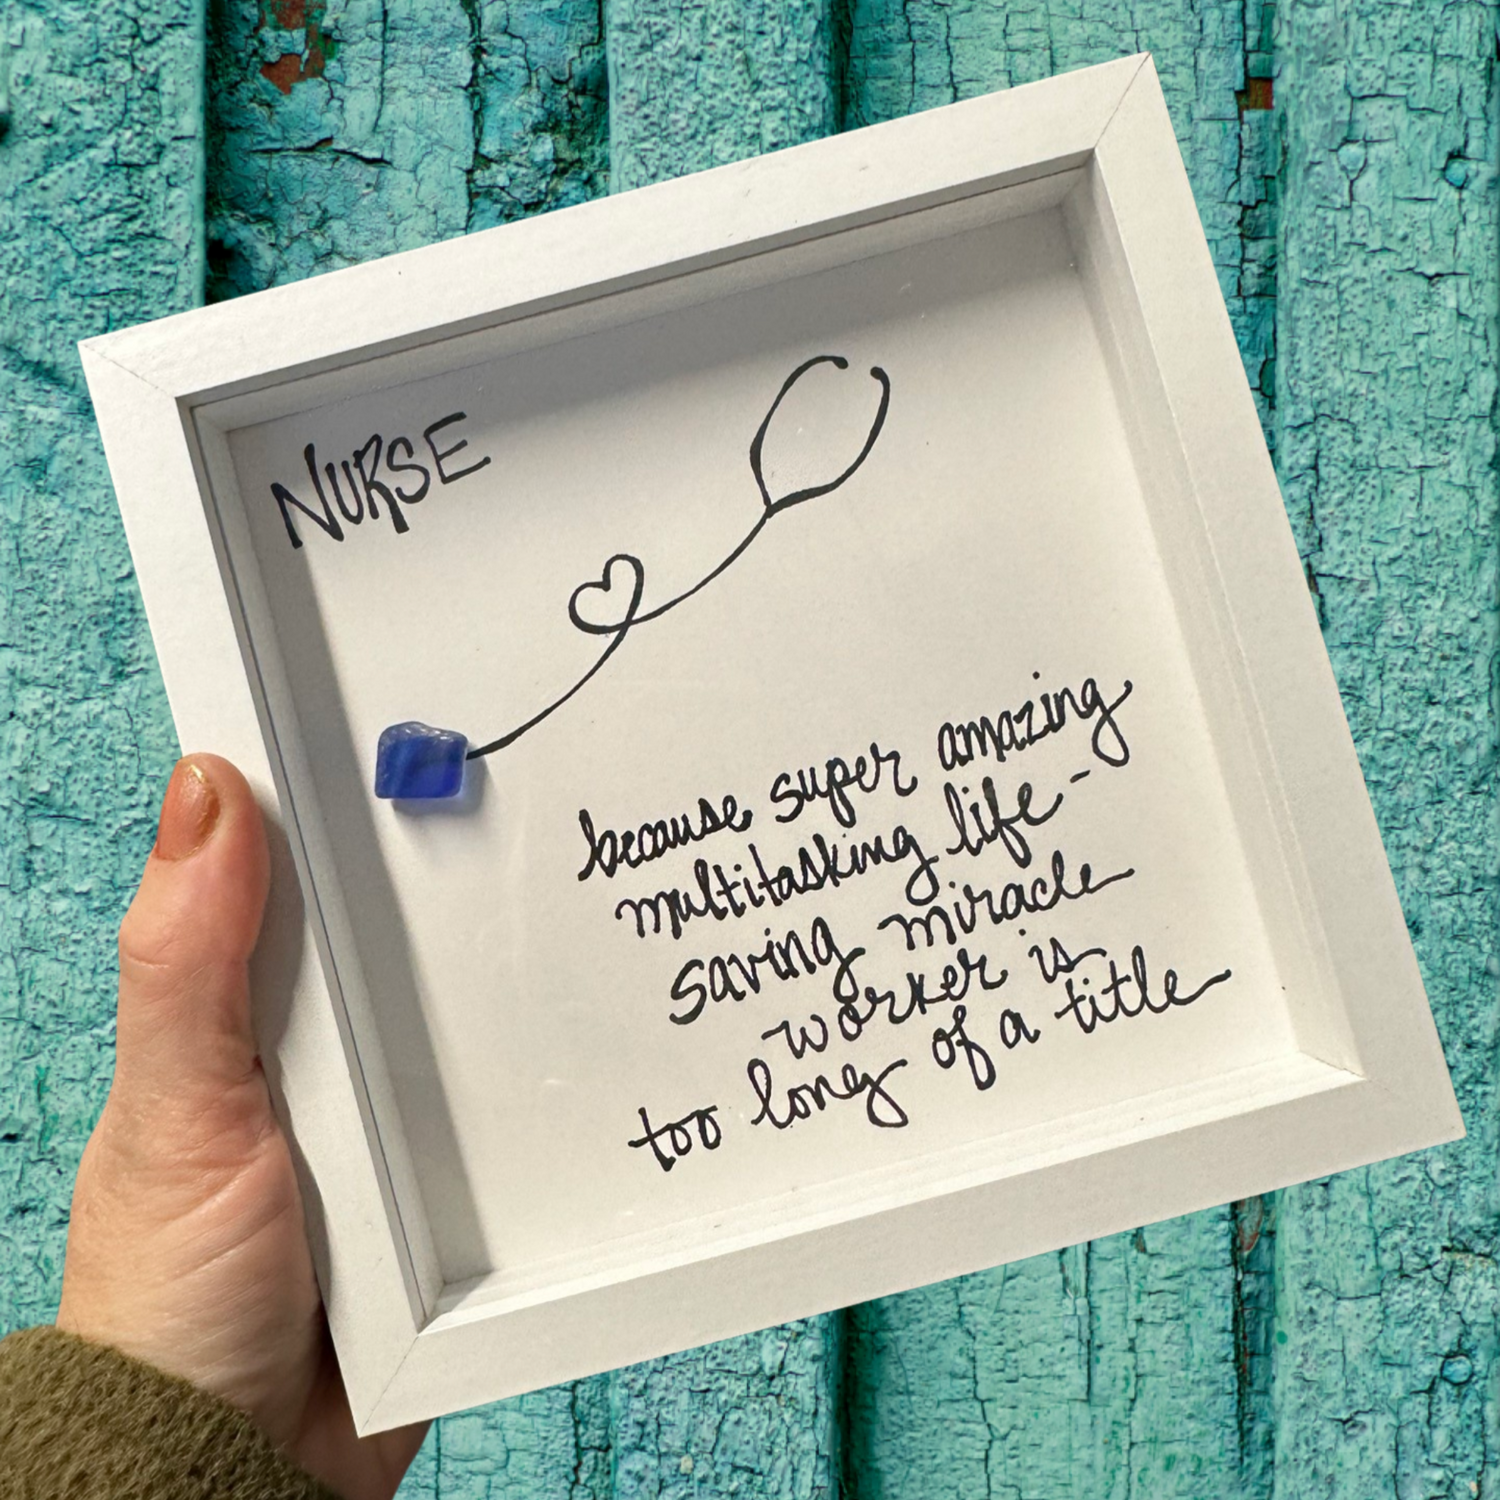 NURSE
because super amazing
multitasking life-
saving miracle
worker is
too long of a title